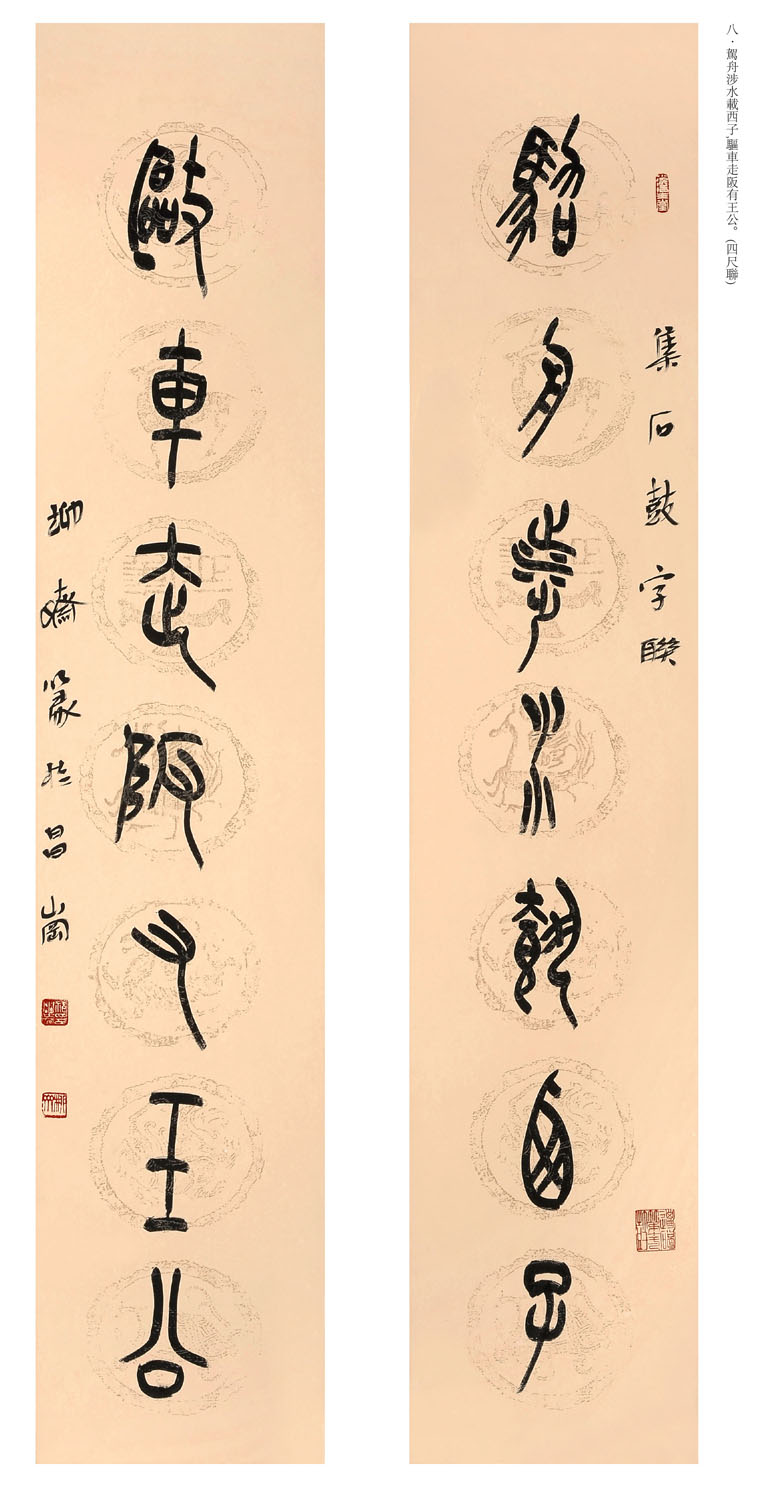 八·駕舟涉水載西子,驅車走阪有王公。(四尺聯)
集石鼓字聯
駕舟涉水載西子
驅車走阪有王公
抑齋篆於昌崗